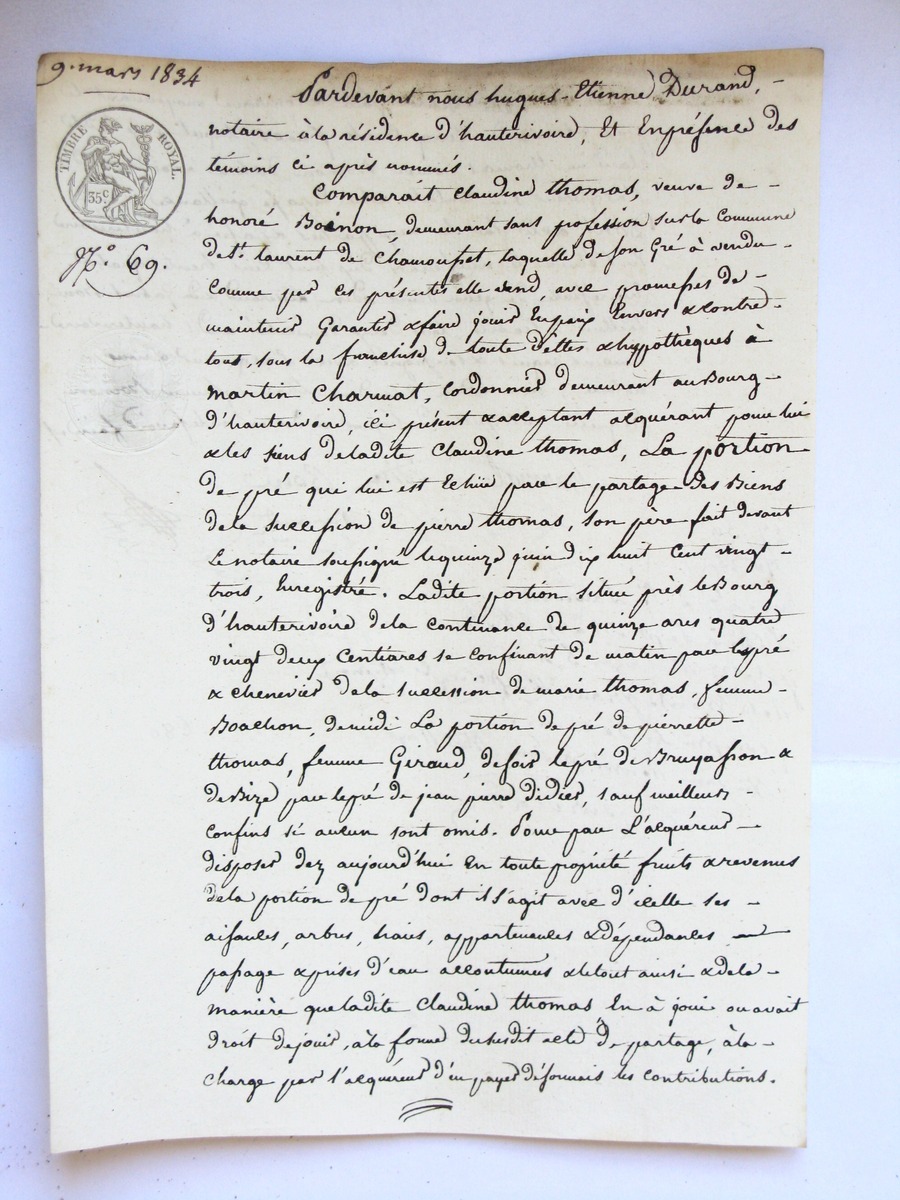 9. mars 1834
TIMBRE ROYAL.
35 c
N.° 69.
Pardevant nous hugues-Etienne Durand,
notaire à la résidence d'hauterivoire, Et En présence des
témoins ci après nommés.
Comparait Claudine thomas, veuve de
honoré Boinon, demeurant sans profession sur la Commune
de St. laurent de Chamousset, laquelle de son Gré à vendu
Comme par ces présentes elle vend, avec promesses de
maintenir Garantir & faire jouir En paix Envers & contre
tous, sous la franchise de toute dettes & hypothèques à
martin Charmat, Cordonnier demeurant au Bourg
d'hauterivoire, ici présent & acceptant acquérant pour lui
& les siens de ladite Claudine thomas, La portion
de pré qui lui est Echue par le partage des Biens
de la succession de pierre thomas, son père fait devant
Le notaire soussigné le quinze juin dix huit Cent vingt
trois, Enregistré. Ladite portion située près le Bourg
d'hauterivoire de la continance de quinze ares quatre
vingt deux Centiares se confinant de matin par le pré
& chenevier de la succession de marie thomas, femme
Boachon, de midi La portion de pré de pierrette
thomas, femme Giraud, de soir le pré de Bruyasson &
de Bize par le pré de jean pierre didier, sauf meilleurs
confins si aucun sont omis. Pour par L'acquéreur
disposer dez aujourd'hui En toute propriété fruits & revenus
de la portion de pré dont il s'agit avec d'icelle ses
aisances, arbres, haies, appartenances & dépendances
passage & prises d'eau accoutumés & le tout ainsi & de la
manière que ladite Claudine thomas En à joui ou avait
droit de jouir, à la forme du susdit acte de partage, à la
charge par l'acquéreur d'en payer désormais les contributions.